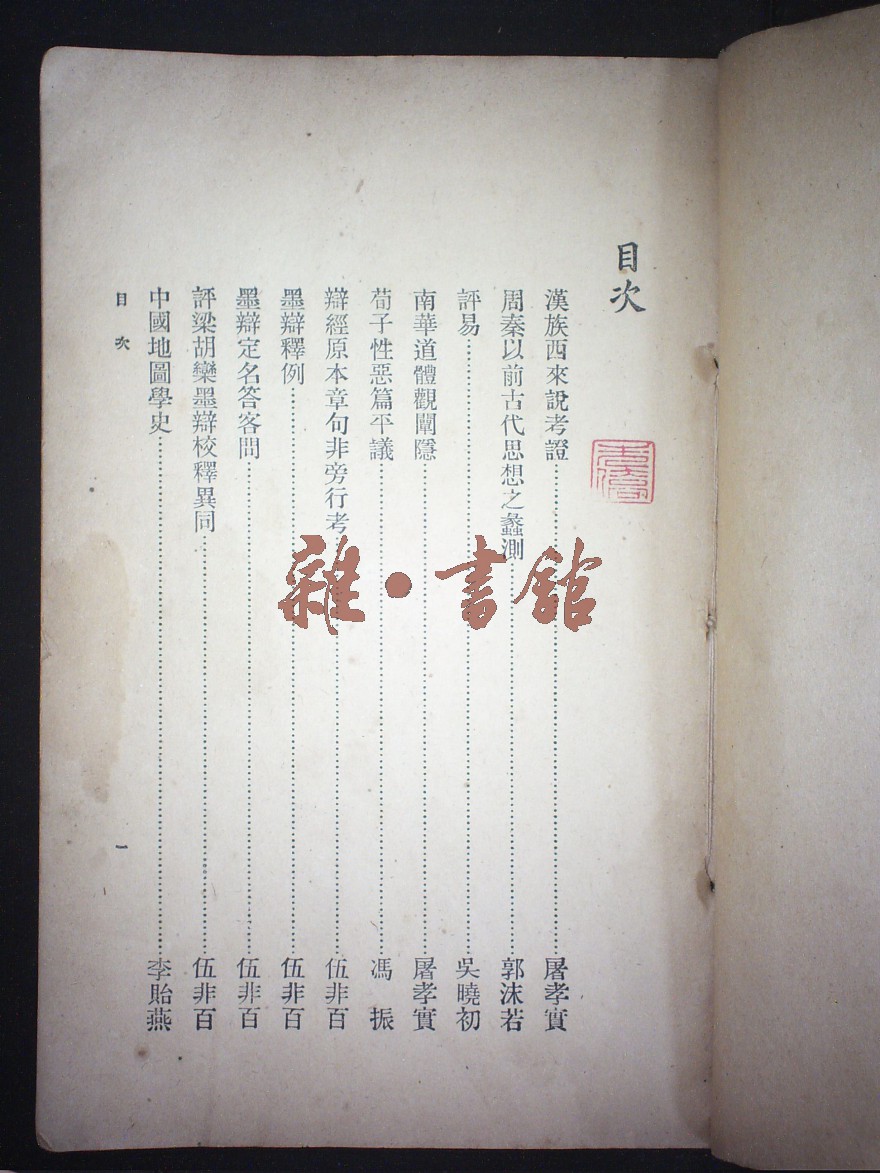 目次
漢族西來說考證……屠孝實
周秦以前古代思想之蠡測……郭沫若
評易……吳曉初
南華道體觀闡隱……屠孝實
荀子性惡篇平議……馮振
辯經原本章句非旁行考……伍非百
墨辯釋例……伍非百
墨辯定名答客問……伍非百
評梁胡欒墨辯校釋異同……伍非百
中國地圖學史……李貽燕
目次
一
雜·書館